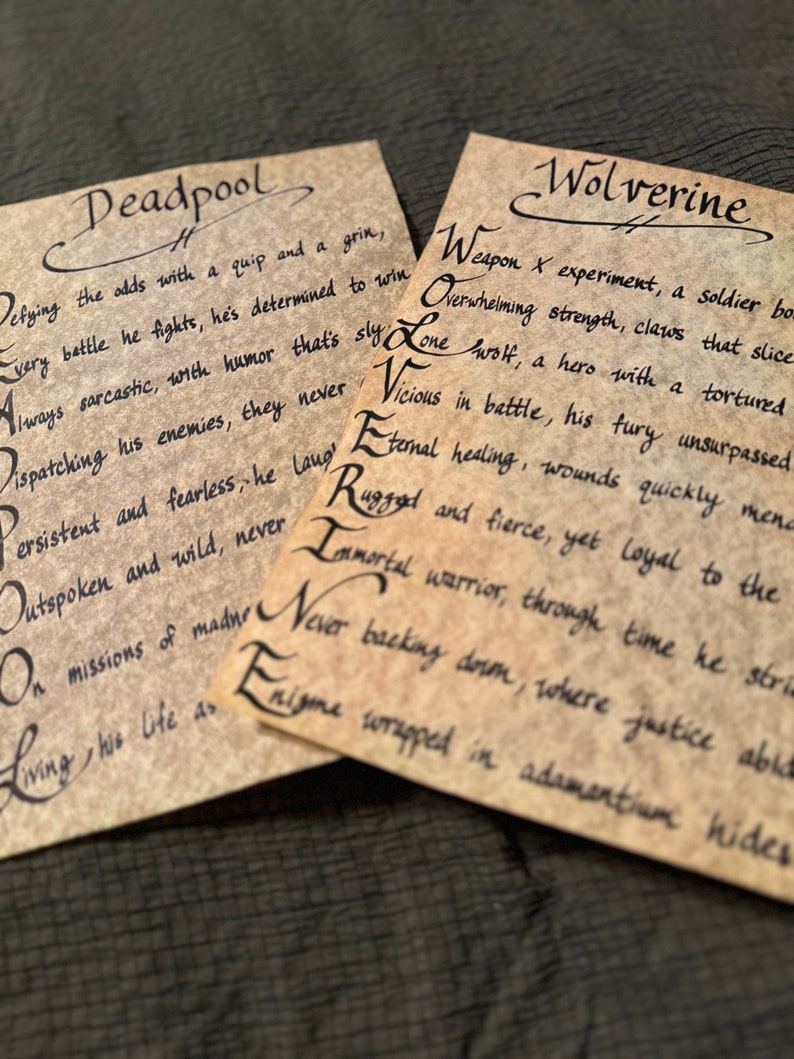 Deadpool
Defying the odds with a quip and a grin,
Every battle he fights, he's determined to win
Always sarcastic, with humor that's sly
Dispatching his enemies, they never
Persistent and fearless, he
Outspoken and wild, never
On missions of
Living his life as
Wolverine
Weapon X experiment, a soldier
Overwhelming strength, claws that slice
Lone wolf, a hero with a tortured
Vicious in battle, his fury unsurpassed
Eternal healing, wounds quickly
Rugged and fierce, yet loyal to the
Immortal warrior, through time he
Never backing down, where justice
Enigma wrapped in adamantium hides